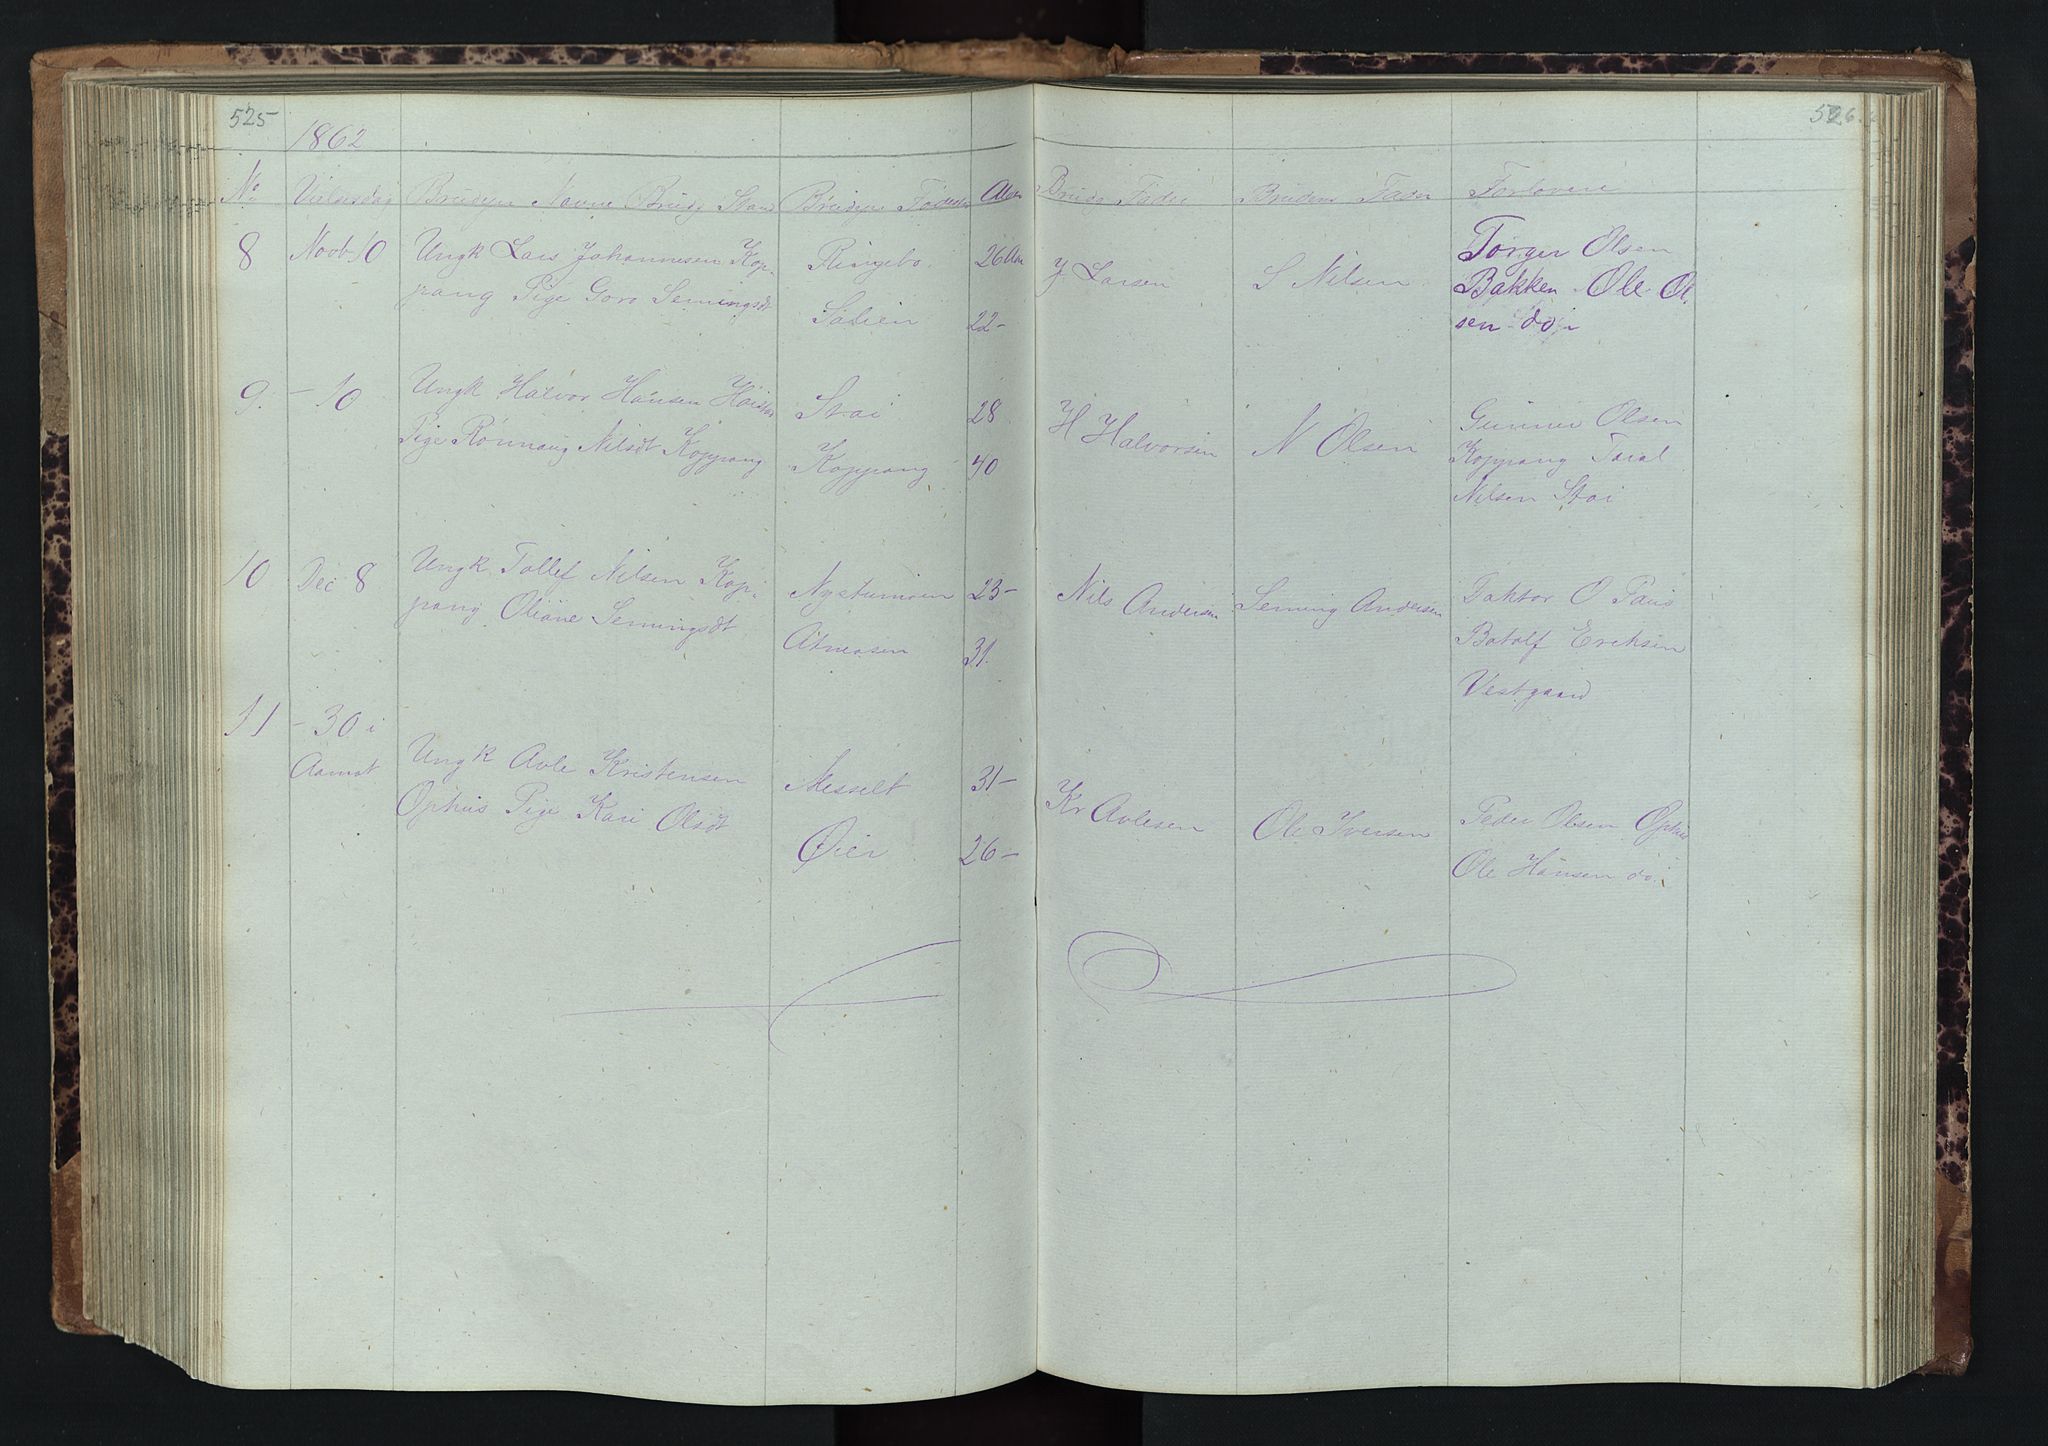 525
526.
1862
No Vielsesdag Brudep Navne Brudg Stand Brudep Fødested Alder Brudg Fader Brudens Fader Forlovere
8 Novb 10 Ungk Lars Johannesen Kop-
pang Pige Goro Semingsdt
Ringebo. 26 Aar
Sollien 22-
J Larsen S Nilsen
Torger Olsen
Bakken Ole Ol
sen do
9. - 10 Ungk Halvor Hansen
Pige Rönnaug Nilsdt Koppang
Stai 28
Koppang 40
H Halvorsen N Olsen
Gunner Olsen
Koppang
Nilsen Stai
10 Dec 8 Ungk Tollef Nilsen Kop-
pang Oliane Semingsdt
Nystumoen 23-
Atneosen 31.
Nils Andersen Seming Andersen
Faktor O Paus
Botolf Eriksen
Vestgaard
11 - 30 i
Aamot
Ungk Avle Kristensen
Ophus Pige Kari Olsdt
Messelt 31-
Øier 26-
Kr Avlesen Ole Iversen
Peder Olsen Ophus
Ole Hansen do.